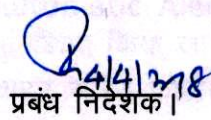 4/4/2018
प्रबंध निदेशक।